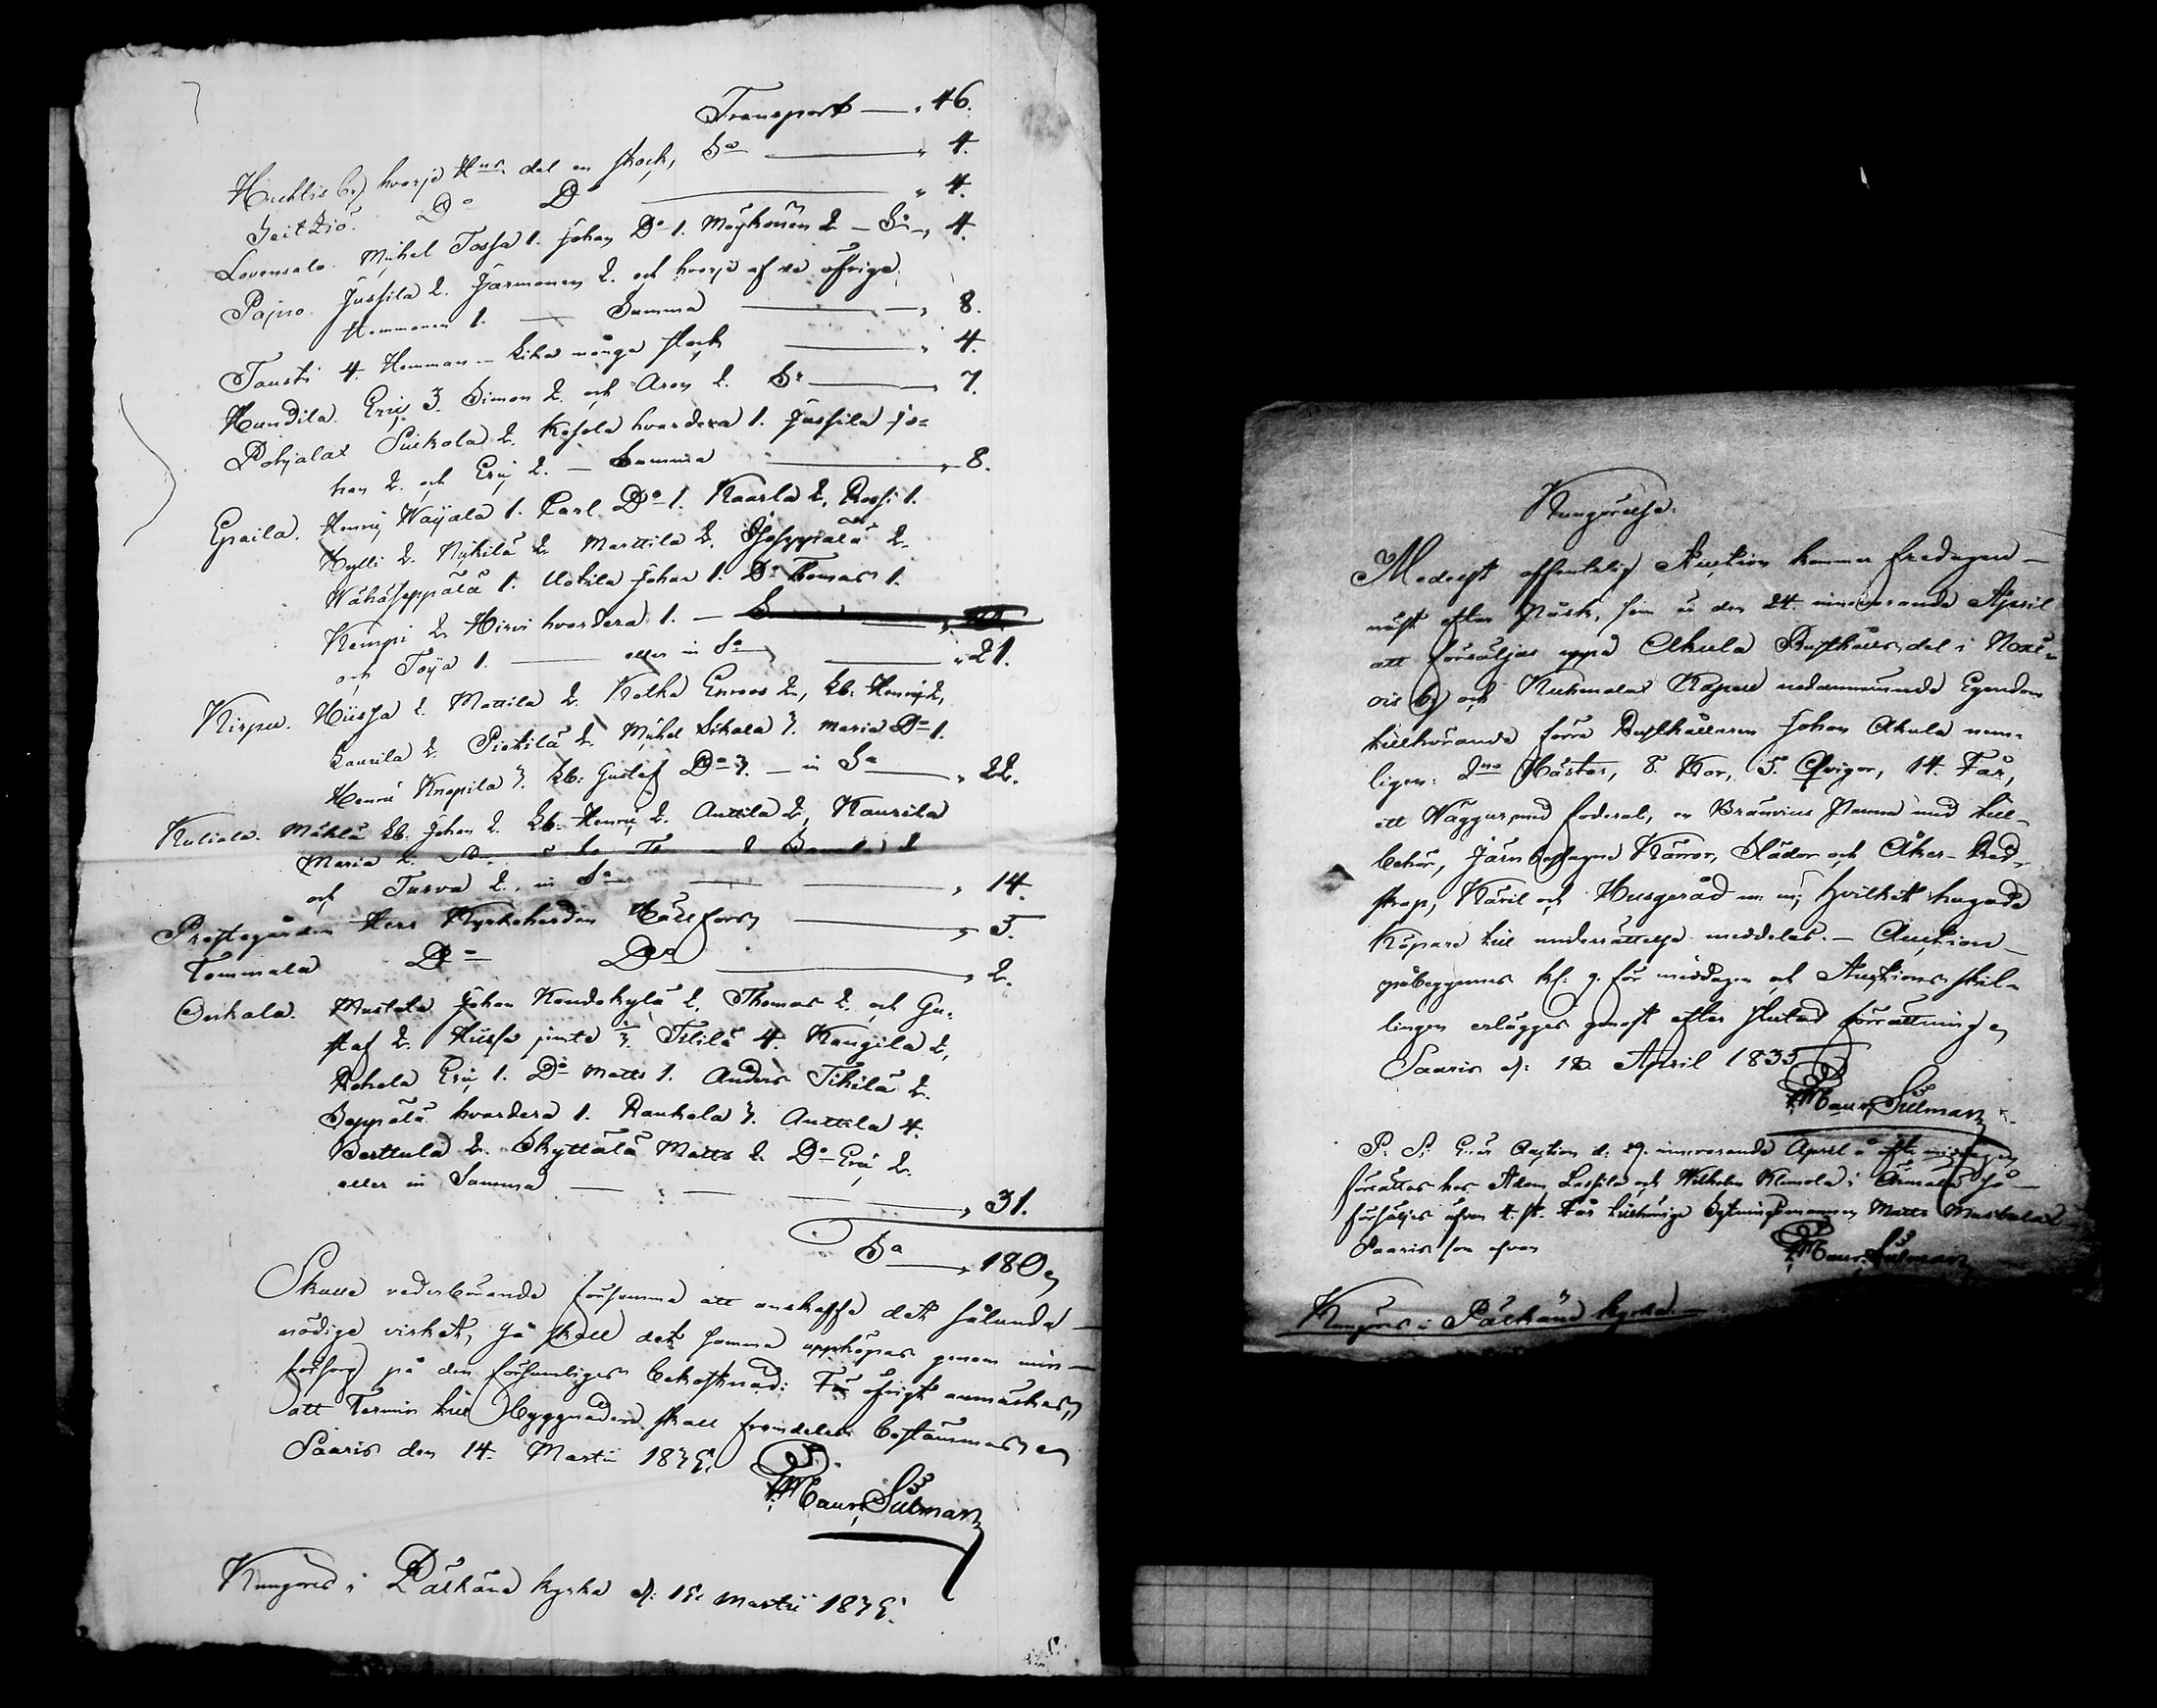 Transport — " 46.
Huchtis by hvarje Hns del en stock, Sa — " 4.
Seitziö. Do Do — " 4.
Lovensalo. Michel Tossa 1. Johan Do 1. Möykönen 2 — Sa — " 4.
Pajno. Jussila 2. Jarmonen 2. och hvarje af de öfriga
Hemmanen 1. — Summa — " 8.
Tausti 4. Hemman — lika många stock — " 4.
Hundila. Eric 3. Simon 2. och Aron 2. Sa — " 7.
Pohjalax Suckola 2. Kesola hvardera 1. Jussila Jo=
han 2. och Eric 2. — Summa — " 8.
Epaila. Henric Wäyälä 1. Carl Do 1. Kaarla 2, Rossi 1.
Hylli 2. Mickilä 2. Marttila 2. Isoseppälä 2.
Wähäseppälä 1. Uotila Johan 1. Do Thomas 1.
Kemppi 2. Hirvi hvardera 1. —
och Töyä 1. — eller in Sa — " 21.
Kirpu. Hiissa 2. Mattila 2. Kolka Enroos 2., Lb: Henric 2,
Laurila 2. Pietilä 2. Michel Sikala 3. Maria Do 1.
Henric Knapila 3. Lb: Gustaf Do 3. — in Sa — " 22.
Kuliala. Mälkiä Lb. Johan 2. Lb. Henric 2. Anttila 2, Kaurila
Maria 2.
och Turva 2., in Sa — " 14.
Prestegården Herr Kyrkoherden Hällfors — " 5.
Tommola Do Do — " 2.
Onkala. Mustala Johan Kondokylä 2, Thomas 2. och Gu=
staf 2. Hiissa 3. Tililä 4. Kangila 2,
Rekola Eric 1. Do Matts 1. Anders Tikilä 2.
Seppälä hvardera 1. Rankala 3. Anttila 4.
Perttula 2. Skyttälä Matts 2. Do Eric 2.
eller in Summa — " 31.
Sa — " 180
Skulle vederbörande försumma att anskaffa det sålunda
nödige virket, så skall det samma uppköpas genom min
försorg på den försumliges bekostnad: För öfrigt anmärkes,
att Termin till byggnaden skall framdeles bestämmas,
Saaris den 14. Martii 1835.
Maur. Silman
Kungöres i Pälkäne kyrka d: 15 Martii 1835.
Kungörelse.
Medelst offentelig Auction kommer Fredagen
näst efter Påsk, som är den 24. innevarande April
att försäljas uppå Ahula Rusthålls del i
ois by och Kuhmalax Kapell nedannämnde Egendom
tillhörande förra Rusthållaren Johan Ahula nem=
ligen: 2ne Hästar, 8. Kor, 5. Qvigor, 14. Får,
ett Wäggur med foderal, en Bränvins Panna med till=
behör, Järnbeslagne Kärror, Slädor och Åker-Red=
skap, Käril och Husgeråd m. m; hvilket hugade
Köpare till underrättelse meddelas. — Auction
påbegynnes kl. 9. för middagen och Auctions skil=
lingen erlägges genast efter slutad förrättning
Saaris d: 12 April 1835
Maur. Silman
P. S. Enär Auction d: 29. innevarande April å efter middagen
förrättas hos Adam Lassila och Wilhelm Klemola i så
försäljes äfven 4. st. Får tillhörige Sytningsmannen Matts Mustala
Saaris som ofvan
Maur. Silman
Kungöres i Pälkäne kyrka.